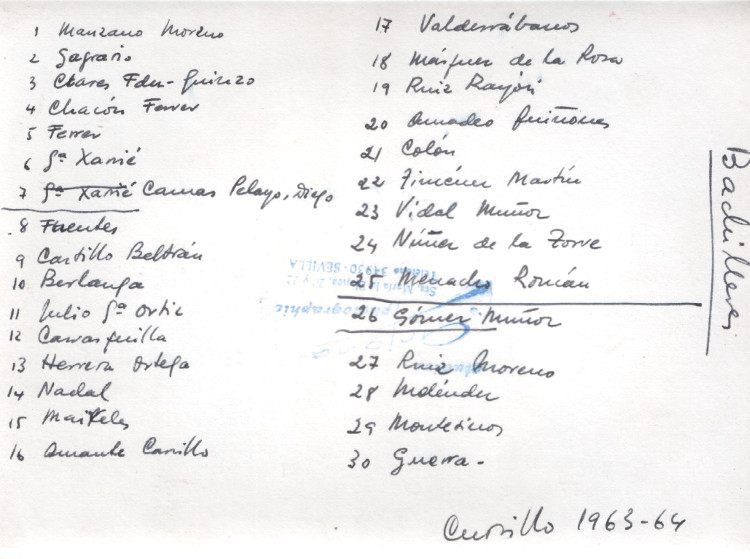 1 Manzano Moreno
2 Sagrario
3 Chares Fdez-Guinzo
4 Chacón Ferrer
5 Ferrer
6 Gª Xarrié
7 Gª Xarrié Camas Pelayo, Diego
8 Fuentes
9 Castillo Beltrán
10 Berlanga
11 Julio Gª Ortiz
12 Carrasquilla
13 Herrera Ortega
14 Nadal
15 Maireles
16 Amante Carrillo
17 Valdesrábanos
18 Márquez de la Rosa
19 Ruiz Rayón
20 Amadeo Quiñones
21 Colón
22 Jiménez Martín
23 Vidal Muñoz
24 Núñez de la Torre
25 Menacho Román
26 Gómez Muñoz
27 Ruiz Moreno
28 Meléndez
29 Montesinos
30 Guerra -
Bachilleres
Cursillo 1963-64
Teléfono 34950 - SEVILLA